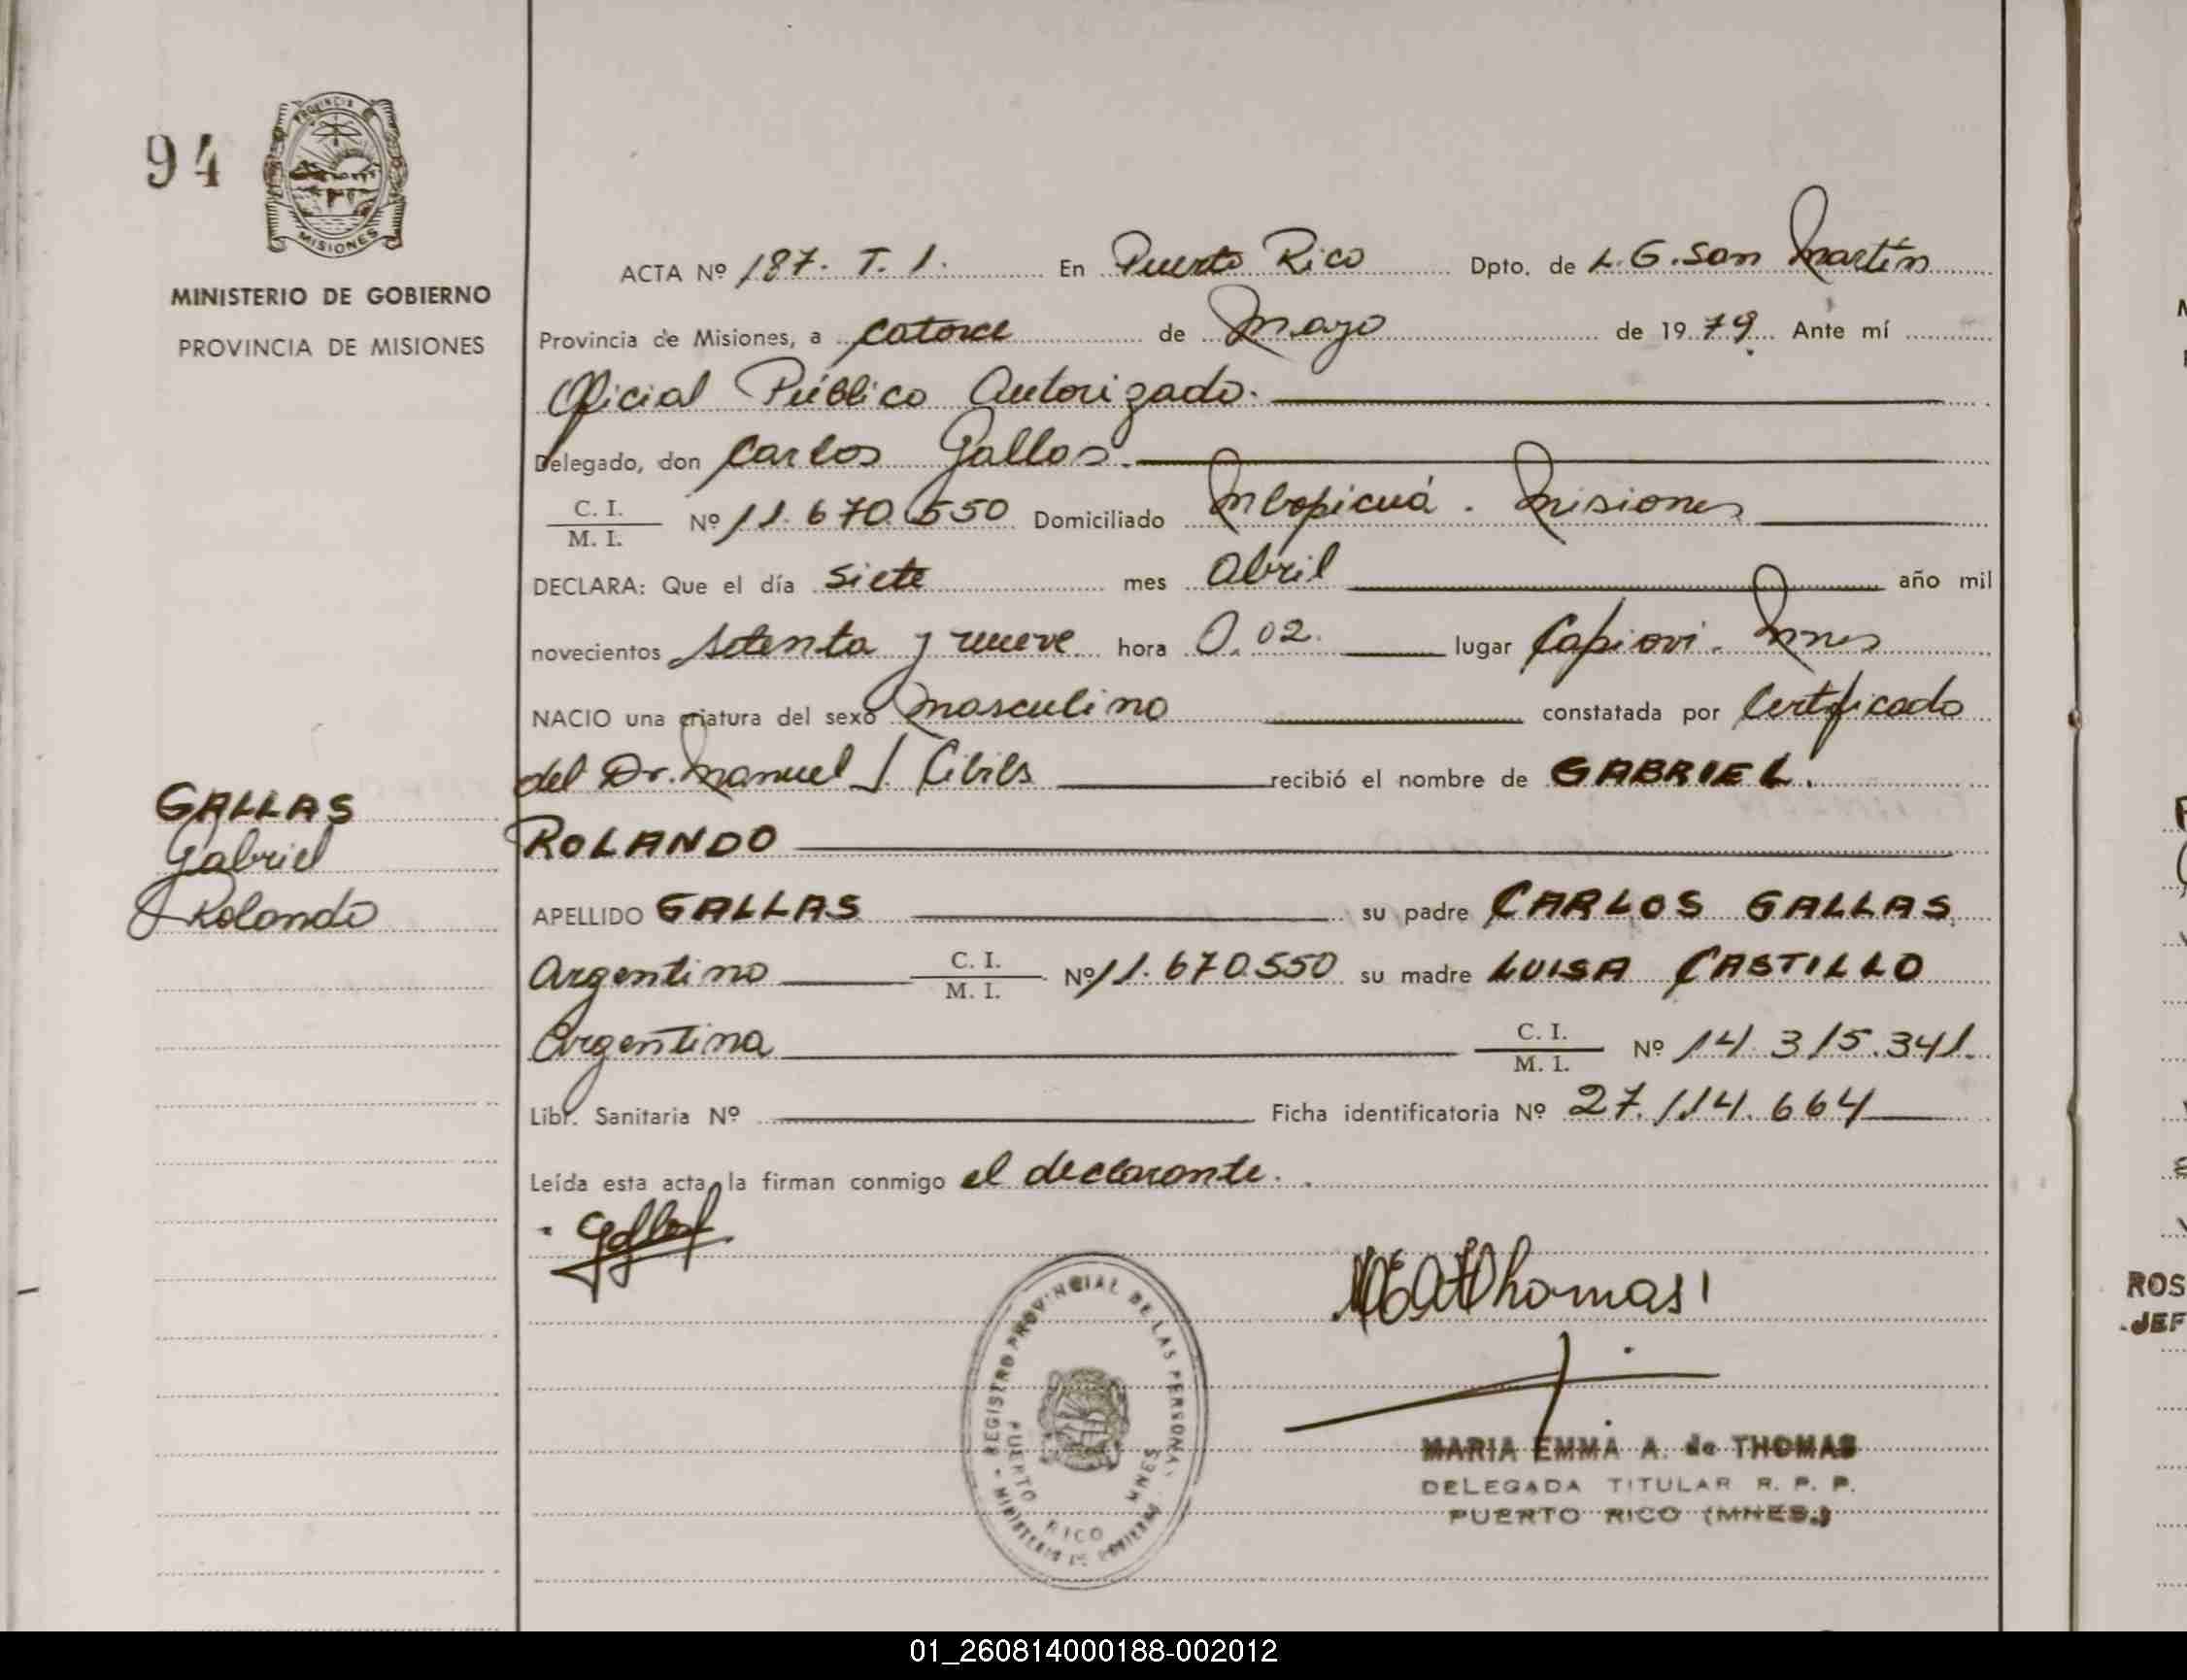 94
PROVINCIA
MISIONES
MINISTERIO DE GOBIERNO
PROVINCIA DE MISIONES
GALLAS
Gabriel
Rolando
ACTA Nº 187. T. 1. En Puerto Rico Dpto. de L. G. San Martín
Provincia de Misiones, a catorce de Mayo de 1979 Ante mí
Oficial Público Autorizado.
Delegado, don Carlos Gallas.
C. I.
M. I. Nº 11.670.550 Domiciliado Mbopicuá - Misiones
DECLARA: Que el día siete mes Abril año mil
novecientos setenta y nueve hora 0.02. lugar Capiovi. Mnes
NACIO una criatura del sexo masculino constatada por Certificado
del Dr. Manuel J. Cibils recibió el nombre de GABRIEL.
ROLANDO
APELLIDO GALLAS su padre CARLOS GALLAS
Argentino C. I.
M. I. Nº 11.670.550 su madre LUISA CASTILLO
Argentina C. I.
M. I. Nº 14.315.341.
Libr. Sanitaria Nº Ficha identificatoria Nº 27.114.664
Leída esta acta, la firman conmigo el declarante.
REGISTRO PROVINCIAL DE LAS PERSONAS
MINISTERIO DE GOBIERNO
PUERTO RICO MNES
Thomas
MARIA EMMA A. de THOMAS
DELEGADA TITULAR R. P. P.
PUERTO RICO (MNES.)
ROS
JEF
01_260814000188-002012